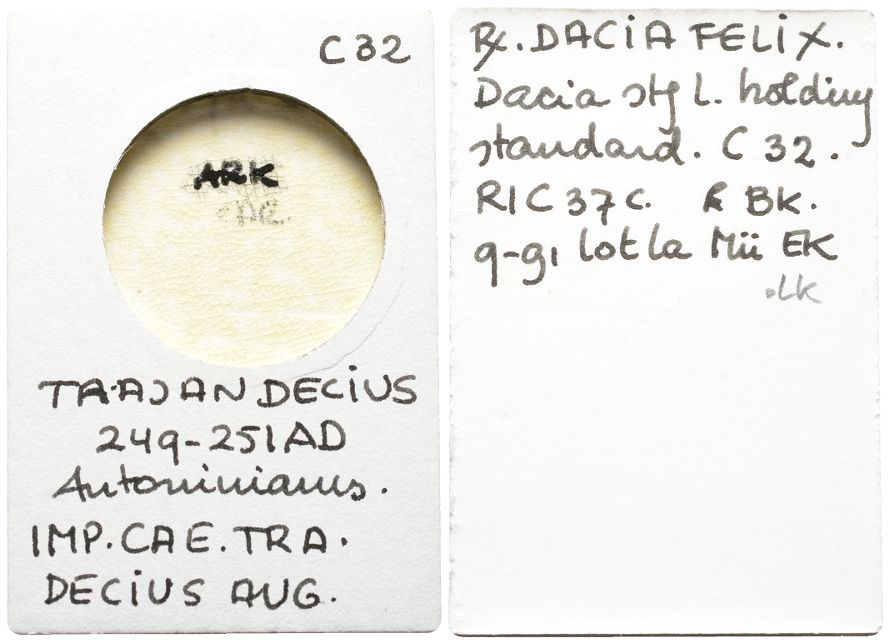 C 32
ARK
TRAJAN DECIUS
249-251 AD
Antoninianus.
IMP. CAE. TRA.
DECIUS AUG.
R. DACIA FELIX.
Dacia stg L. holding
standard. C 32.
RIC 37c. BK.
lot la Mü EK
.LK